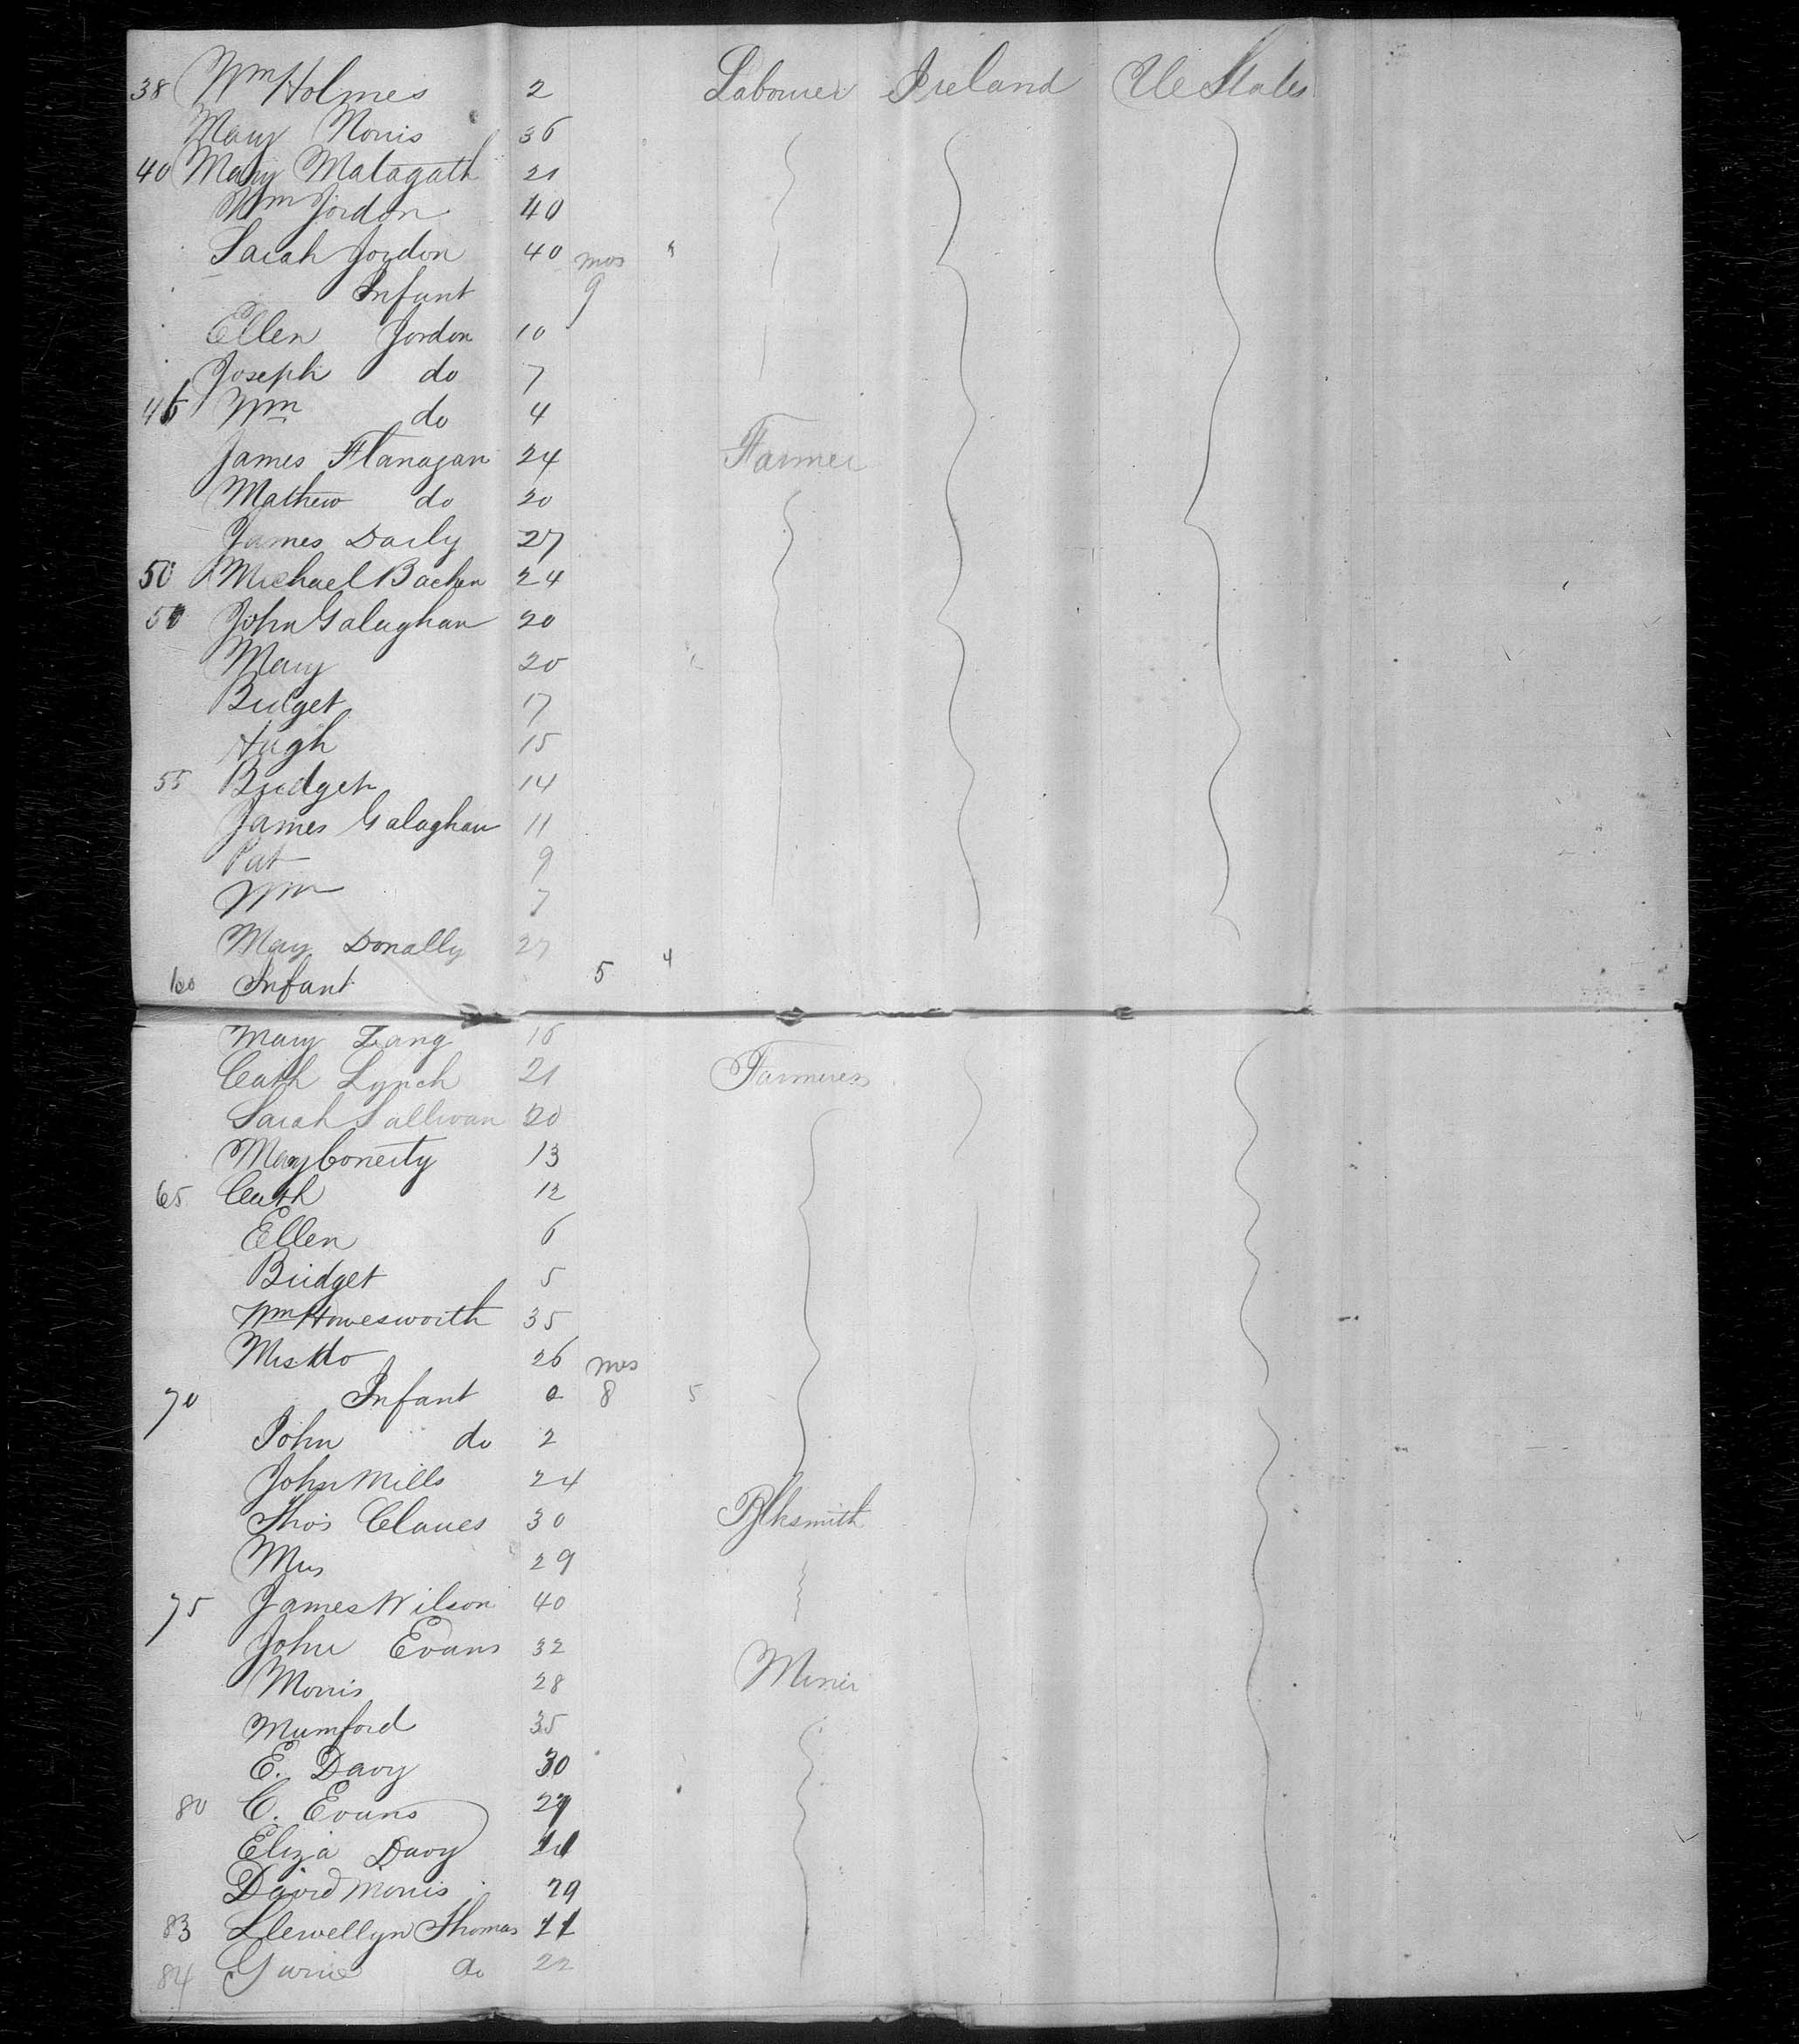 38 Wm Holmes 2 Labourer Ireland Ue States
Mary Norris 36
40 Mary Matagath 21
Wm Jordon 40
Sarah Jordon 40 mos
Infant 9
Ellen Jordon 10
Joseph do 7
46 Wm do 4
James Flanagan 24 Farmer
Mathew do 20
James Daily 27
50 Michael Bachen 24
51 John Galaghan 20
Mary 20
Bridget 17
Hugh 15
55 Bridget 14
James Galaghan 11
Pat 9
Wm 7
Mary Donally 27
60 Infant 5 4
Mary Lang 16
Cath Lynch 21 Farmeres
Sarah Sullivan 20
Mary Conerty 13
65 Cath 12
Ellen 6
Bridget 5
Wm Howesworth 35
Mrs do 26 mos
70 Infant 0 8 5
John do 2
John Mills 24
Thos Clanes 30 Blksmith
Mrs 29
75 James Wilson 40
John Evans 32
Morris 28 Miner
Mumford 35
E. Davy 30
80 C. Evans 29
Eliza Davy
David Morris 29
83 Llewellyn Thomas
84 do 22